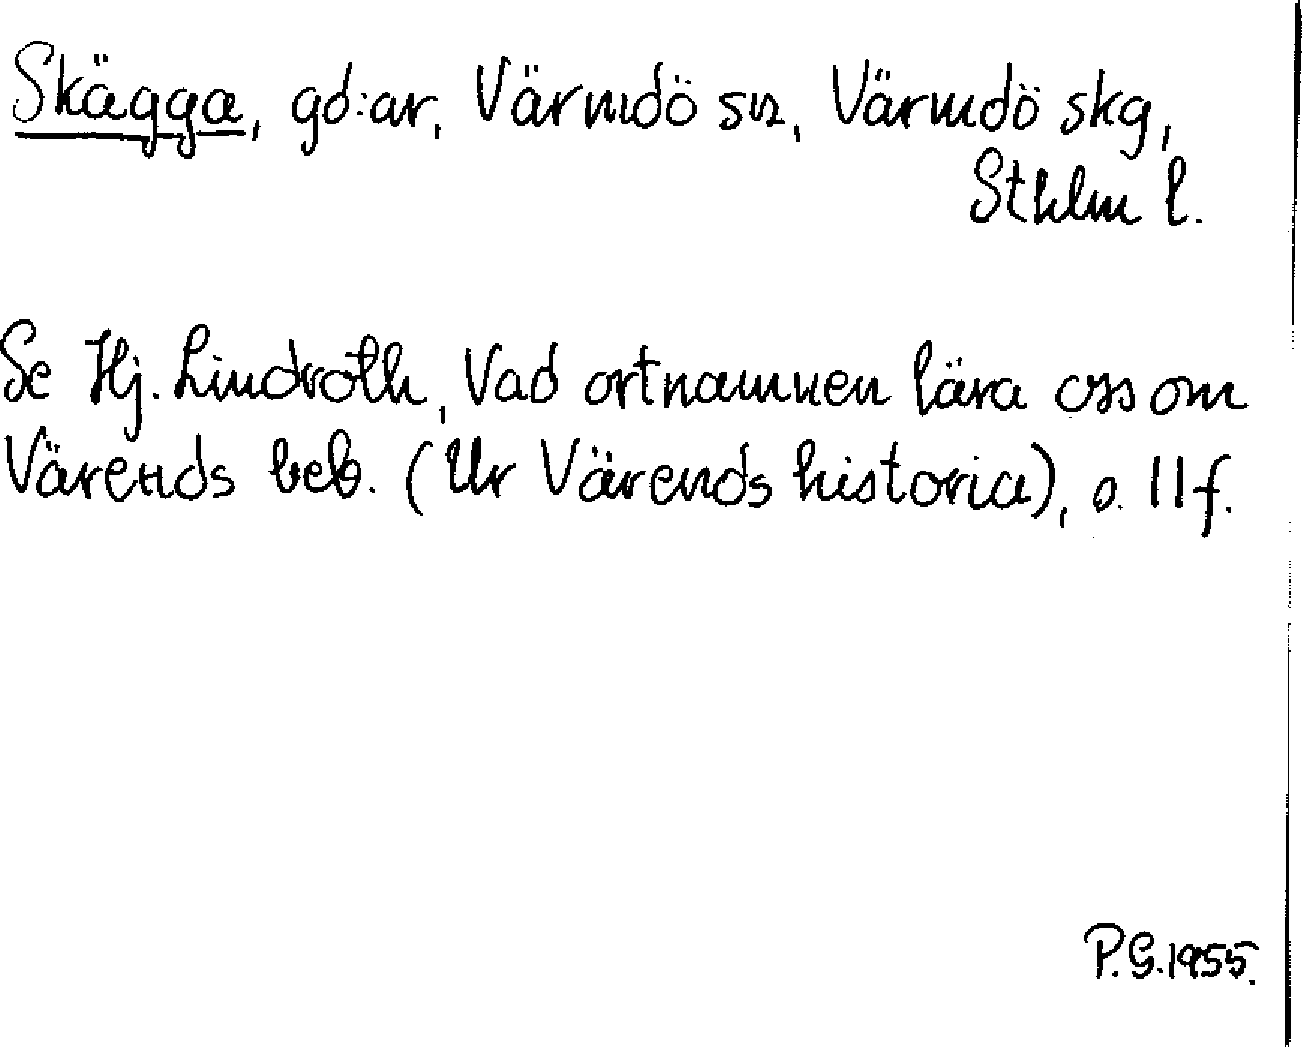 Skägga, gd:ar, Värmdö sn, Värmdö skg,
Sthlm l.
Se Hj. Lindroth, Vad ortnamnen lära oss om
Värends beb. (Ur Värends historia), s. 11f.
P.G. 1955.